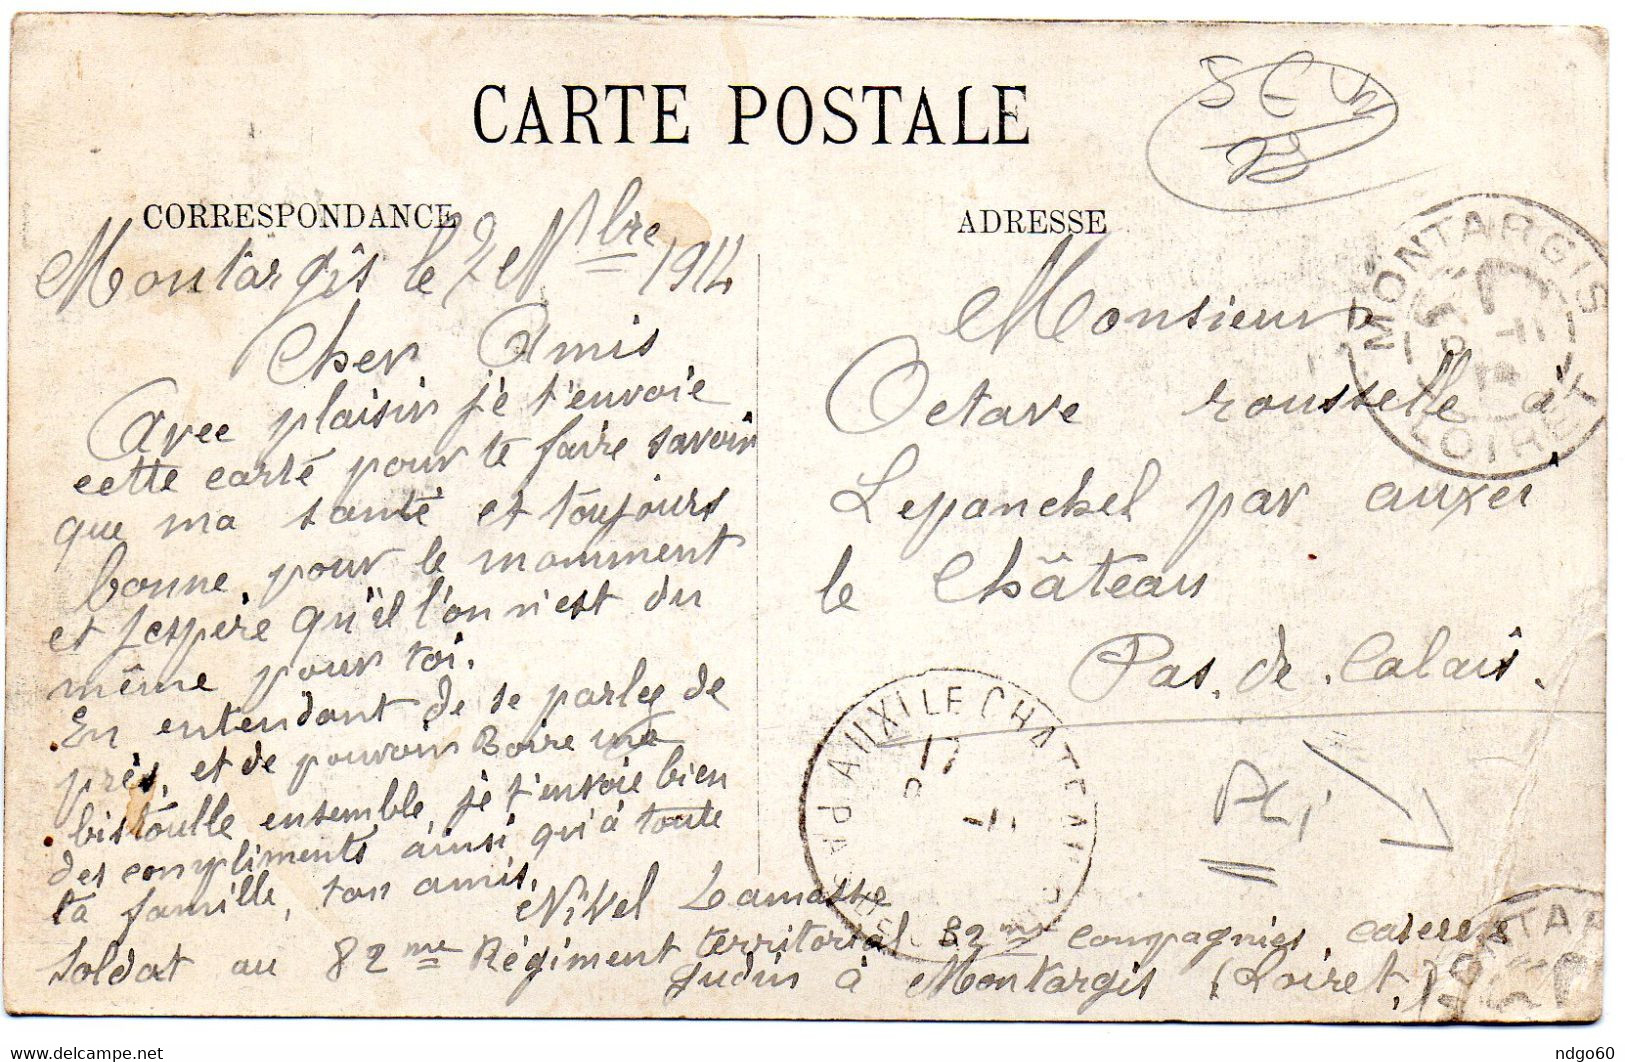 CARTE POSTALE
CORRESPONDANCE
Montargîs le 7 Nbre 1914
Cher Amis
Avec plaisir je t'envoie
cette carté pour te faire savoir
que ma santé et toujours
bonne pour le momment
et J'espère qu'il l'on n'est du
même pour toi.
En entendant de se parler de
près, et de pouvoir Boire une
bistoulle ensemble, je t'envoie bien
des compliments ainsi qu'à toute
ta famille, ton amis.
Nivel Lamotte
Soldat au 82me Régiment territorial 32me compagnies, caserne
Gudin à Montargis (Loiret,)
ADRESSE
Monsieur
Octave rousselle à
Lepanchel par auxei
le Château
Pas. de. Calais.
MONTARGIS
LOIRET
AUXI LE CHATEAU
17
MONTAR
delcampe.net
ndgo60